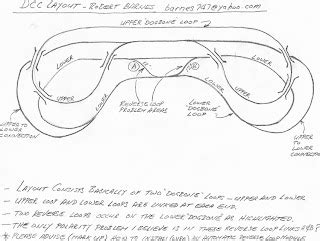 DCC LAYOUT - ROBERT BURNES barnes747@yahoo.com
UPPER DOGBONE LOOP
LOWER
LOWER
LOWER
LOWER
A
B
UPPER
UPPER
REVERSE LOOP
PROBLEM AREAS
LOWER
DOGBONE
LOOP
UPPER TO
LOWER
CONNECTION
UPPER
TO
LOWER
CONNECTION
- LAYOUT CONSISTS BASICALLY OF TWO "DOGBONE" LOOPS - UPPER AND LOWER
- UPPER LOOP AND LOWER LOOPS ARE LINKED AT EACH END.
- TWO REVERSE LOOPS OCCUR ON THE LOWER DOGBONE AS HIGHLIGHTED.
- THE ONLY POLARITY PROBLEM I BELIEVE IS IN THESE REVERSE LOOP LINKS A & B?
* PLEASE ADVISE (MARK UP) HOW TO INSTALL AUTOMATIC REVERSE LOOP MODULE